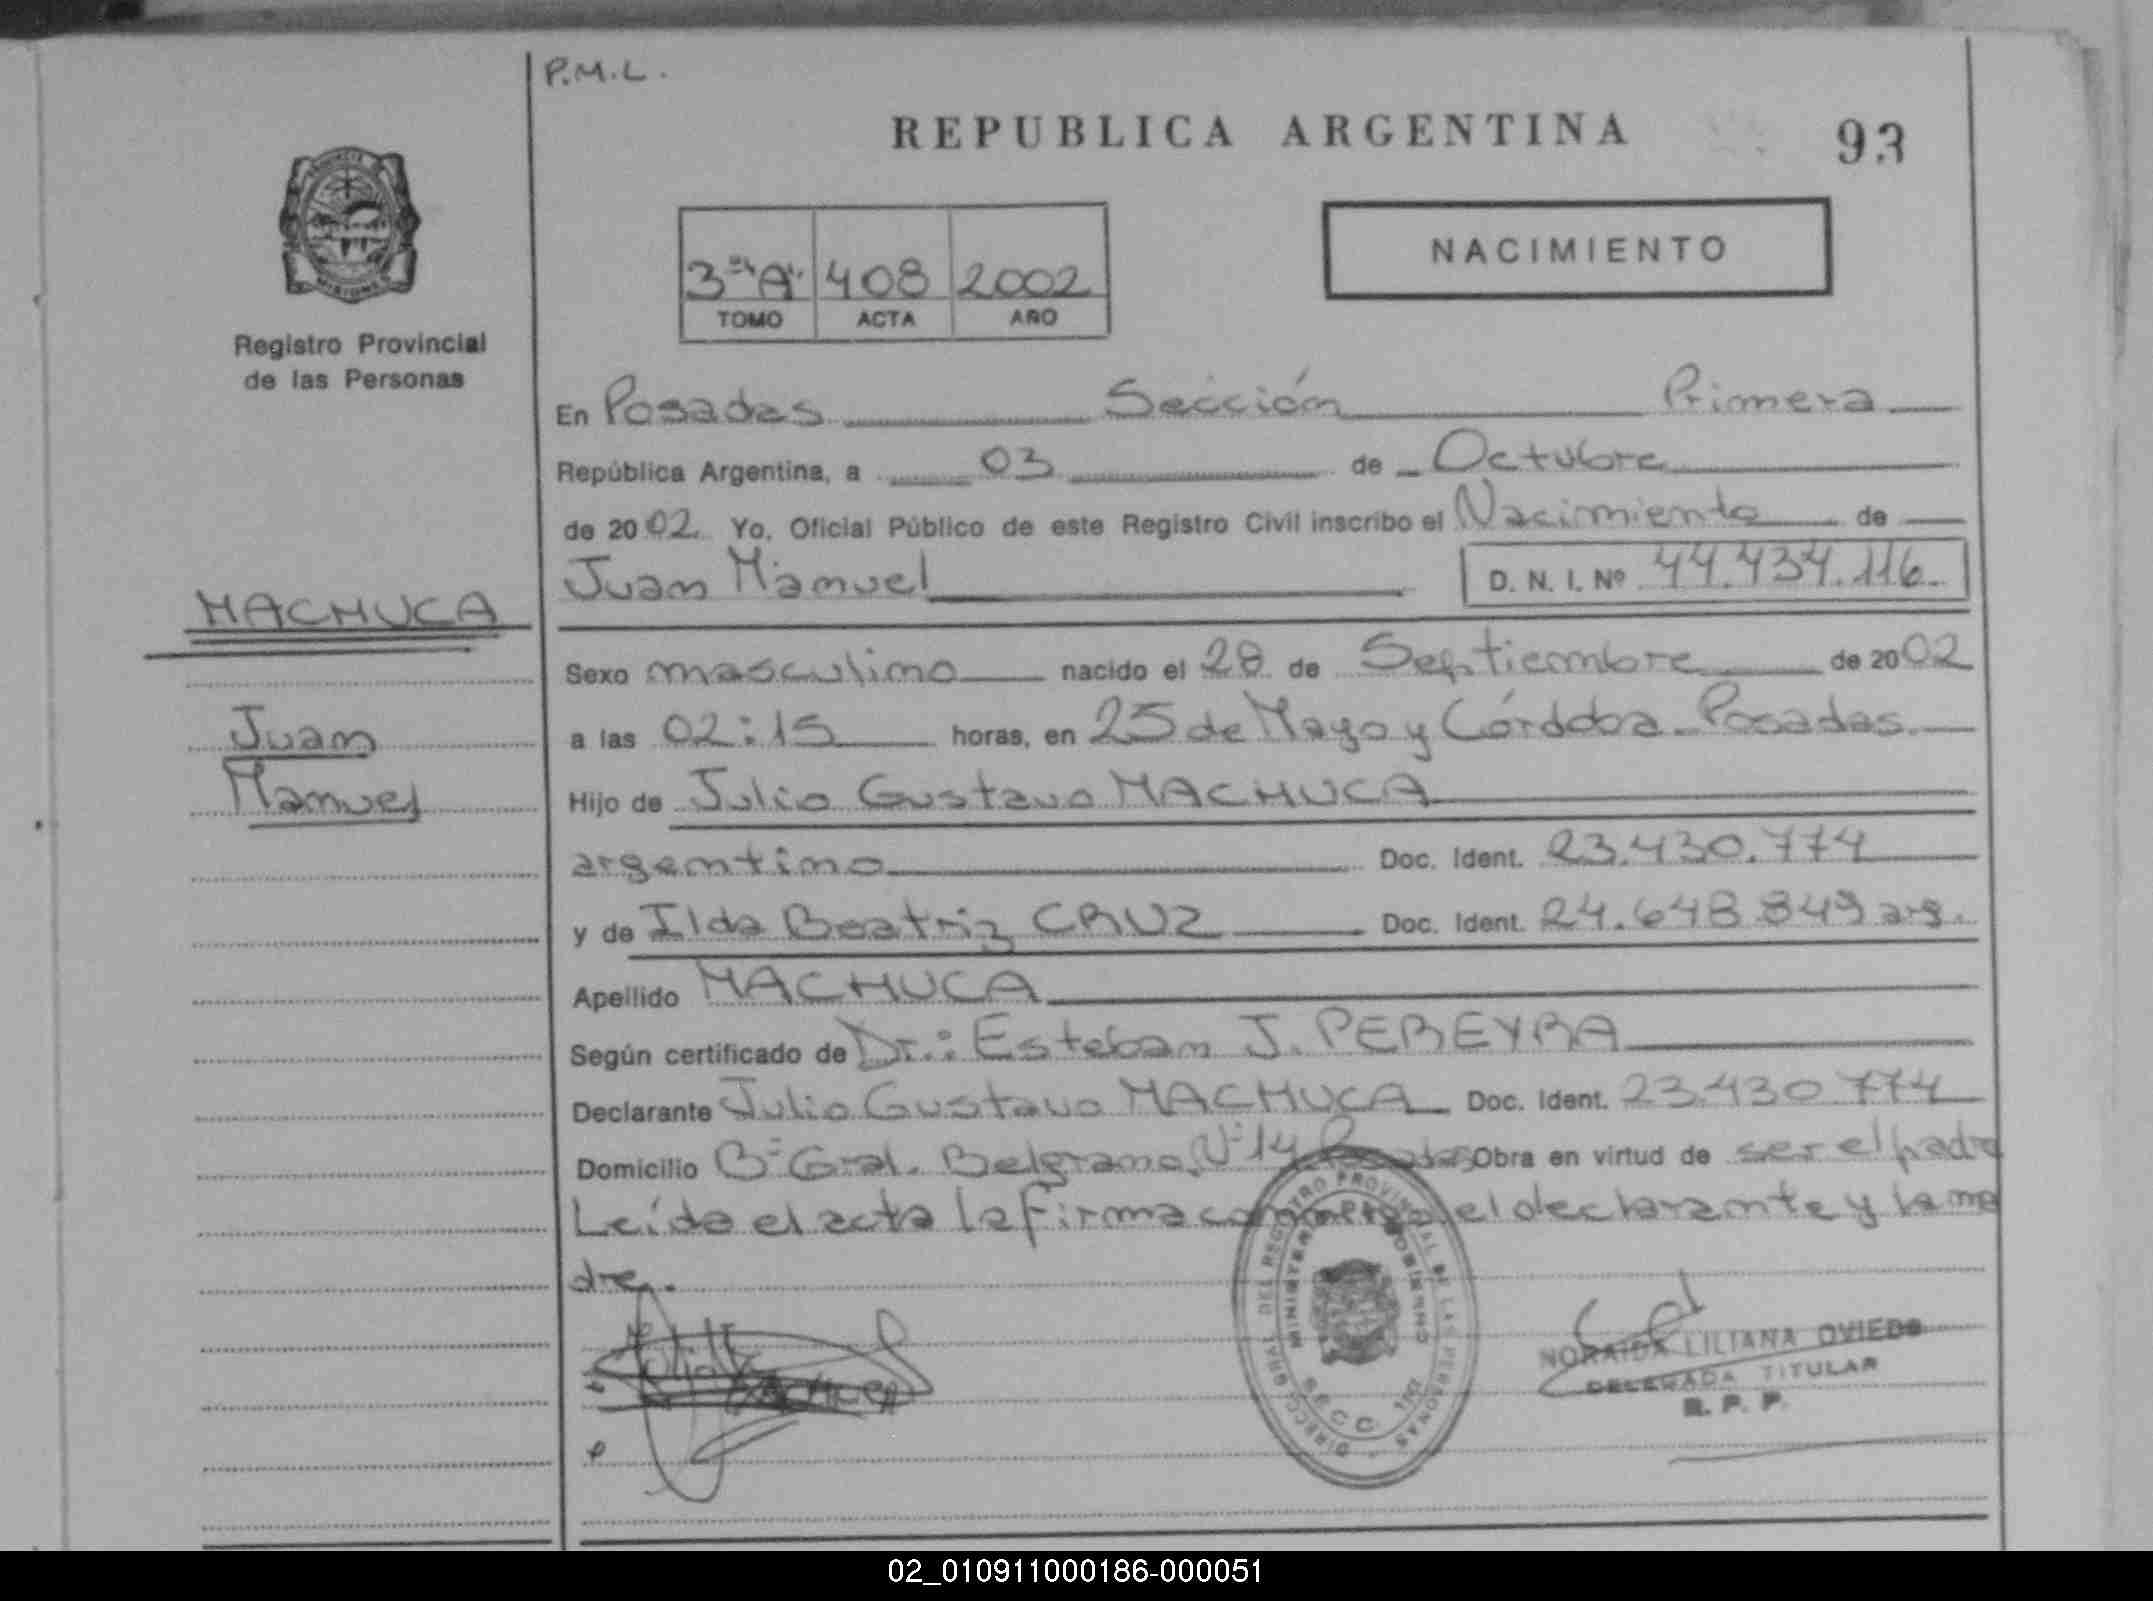 P.M.L.
REPUBLICA ARGENTINA
93
3º "A" 408 2002
TOMO ACTA AÑO
NACIMIENTO
Registro Provincial
de las Personas
En Posadas Sección Primera
República Argentina, a 03 de Octubre
de 2002. Yo, Oficial Público de este Registro Civil inscribo el Nacimiento de
Juan Manuel D. N. I. Nº 44.434.116
MACHUCA
Juan
Manuel
Sexo masculino nacido el 28 de Septiembre de 2002
a las 02:15 horas, en 25 de Mayo y Córdoba - Posadas
Hijo de Julio Gustavo MACHUCA
argentino Doc. Ident. 23.430.774
y de Ilda Beatriz CRUZ Doc. Ident. 24.648.849 arg.
Apellido MACHUCA
Según certificado de Dr.: Esteban J. PEREYRA
Declarante Julio Gustavo MACHUCA Doc. Ident. 23.430.774
Domicilio Bº Gral. Belgrano, Nº 14 Posadas Obra en virtud de ser el padre
Leída el acta la firma conmigo el declarante y la ma
dre.
DIRECC. GRAL. DEL REGISTRO PROVINCIAL DE LAS PERSONAS
MINISTERIO GOBIERNO
SECC.
NORAIDA LILIANA OVIEDO
DELEGADA TITULAR
R. P. P.
02_010911000186-000051